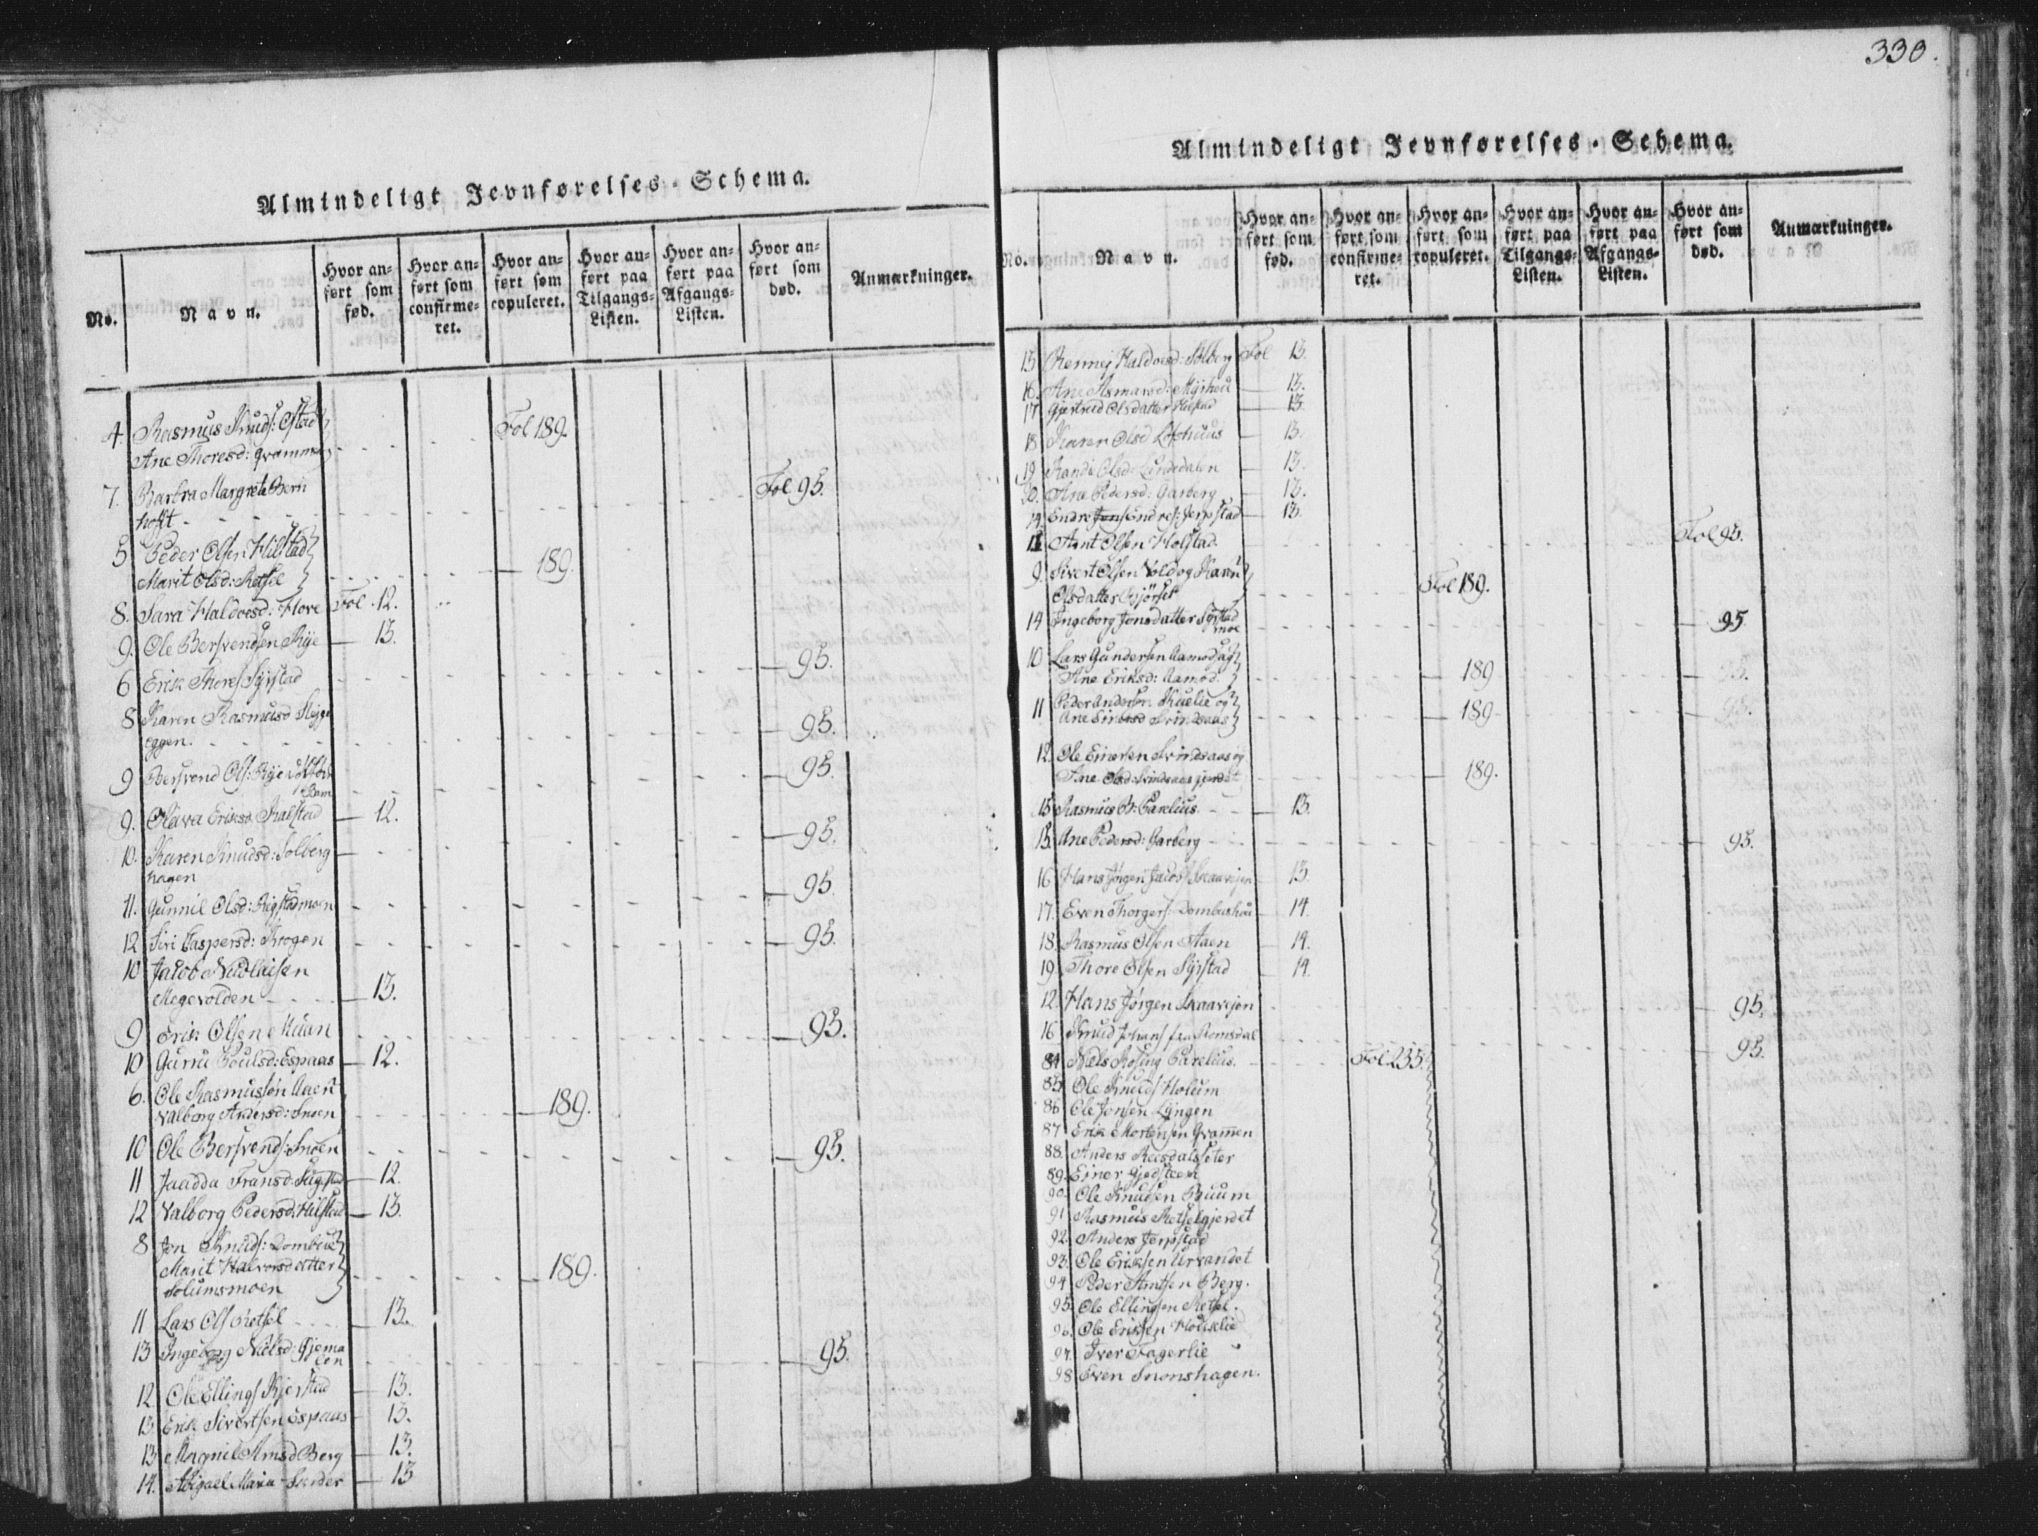 Almindeligt Jevnførelses-Schema.
No.
Navn.
Hvor an-
ført som
fød.
Hvor an-
ført som
confirme-
ret.
Hvor an-
ført som
copuleret.
Hvor an-
ført paa
Tilgangs-
Listen.
Hvor an-
ført paa
Afgangs-
Listen.
Hvor an-
ført som
død.
Anmærkninger.
4. Rasmus Knuds: Stad Fol 189.
Ane Thoresd: Grammen
7. Barbra Margreta Bern Fol 95.
hoft
5. Peder Olsen Hilstad
Marit Olsd: Retsel 189.
8. Sara Haldorsd: Hove Fol 12.
9. Ole Bersvendsen Rye 13.
6 Erik Thores: Syrstad 95.
8 Karen Rasmusd
eggen. 95.
9 Bersvend Ols: Rye 95.
9. Olava Eriksd: Kalstad 12.
10. Karen Knudsd: Solberg 95.
hagen
11. Gunnil Olsd: Rigstadmoen 95.
12 Siri Caspersd: Krogen 95.
10 Jacob Nicolaisen
Megevolden 13.
9 Erik Olsen Muan 95.
10 Gurru Poulsd: Espaas 12.
6. Ole Rasmussøn Aaen
Valborg Andersd: Snoen 189.
10 Ole Bersvends: Snoen 95.
11 Jaadda Fransd: 12.
12 Valborg Pedersd: Hilstad 13.
8 Jon Knuds: Dombue
Marit Halvorsdatter 189.
Solumsmoen
11 Lars Ols Retsel 13.
13 Ingeborg Nielsd: Gjema 95.
len
12. Ole Ellings Kjerstad 13.
13. Erik Sivertsen Espaas 13.
13 Magnil Arnsd Berg 13.
14. Abigael Maria 13
330.
Almindeligt Jevnførelses-Schema.
No.
Navn.
Hvor an-
ført som
fød.
Hvor an-
ført som
confirme-
ret.
Hvor an-
ført som
copuleret.
Hvor an-
ført paa
Tilgangs-
Listen.
Hvor an-
ført paa
Afgangs-
Listen.
Hvor an-
ført som
død.
Anmærkninger.
15 Rennej Haldorsd: Solberg Fol 13.
16. Ane 13.
17. Gjertrud Olsdatter Hilstad 13.
18 Karen Olsd Lofshuus 13.
19 Randi Olsd: Lindedalen 13.
Ane Pedersd: Garberg 13.
14. Endre Endres: Jerpstad 13.
Arnt Olsen Holstad Fol 95.
9. Sivert Olsen Vold og Karen
Olsdatter Fol 189.
14 Ingeborg Jonsdatter Syrstad
moe 95
10 Lars Gundersen Aamod og
Ane Eriksd: Aamod. 189 95.
11 Peder Andersøn Kuelie og
Ane 189 95.
12. Ole Einersen Svindsaas og
Ane Olsd: 189.
15 Rasmus B: Parelius 13.
15. Ane Pedersd: Garberg 95.
16 Hans Jørgen Jacobs Skaavejen 13.
17. Even Thorgers: Dombushau 14.
18. Rasmus Olsen Aaen 14.
19. Thore Olsen Syrstad 14.
12. Hans Jørgen Skaavejen 95.
16 Knud Johans fra Romsdal 95.
84. Niels Rosing Parelius. Fol 233.
85. Ole Knuds Holum
86 Ole Jonsen Lyngen
87. Erik Mortensen Grammen
88. Anders Reesdalsseter
89. Einer Gjedsteen
90. Ole Knudsen Buum
91. Rasmus Retselgjerdet
92. Anders Jerpstad
93. Ole Eriksen Urvandet
94 Peder Arntsen Berg.
95. Ole Ellingsen Retsel.
96. Ole Eriksen Houklie
97. Iver Fagerlie
98 Even Snoenshagen.